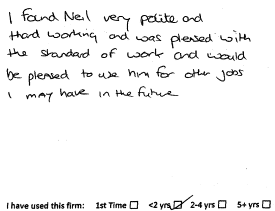 I found Neil very polite and
Hard working and was pleased with
the standard of work and would
be pleased to use him for other jobs
I may have in the future
I have used this firm: 1st Time ☐ <2 yrs ☑ 2-4 yrs ☐ 5+ yrs ☐